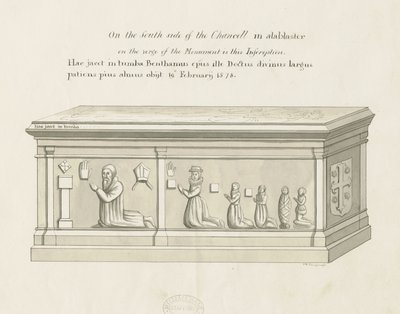 On the South side of the Chancell in alablaster
on the verge of the Monument is this Inscription.
Hac jacet in tumba Benthaman epus ille Doctus divinus largus
patiens pius almus obijt 19° Februarij 1578.
Hac jacet in tumba